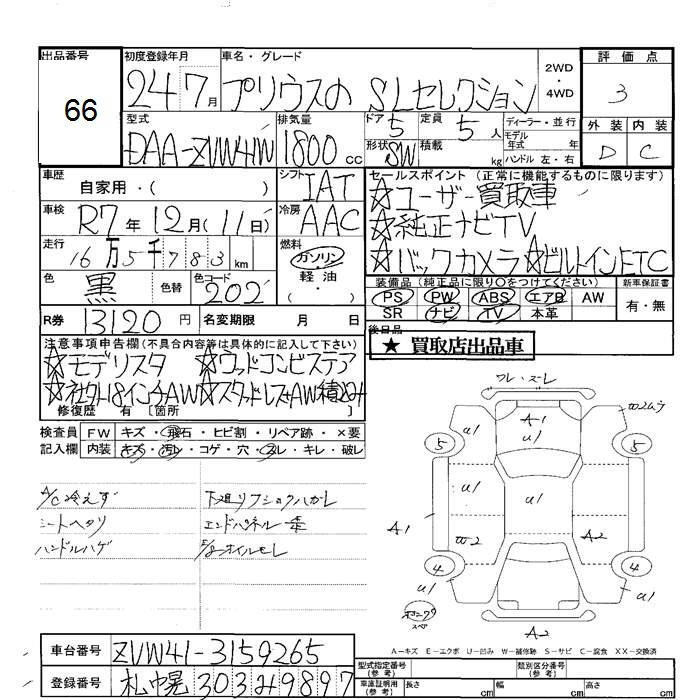 出品番号 初度登録年月 車名・グレード 2WD・4WD 評価点
66 24 7月 プリウスα SLセレクション 3
外装 内装
D C
型式 排気量 ドア 定員 ディーラー・並行
DAA-ZVW41W 1800cc 5 5人
モデル年式 年
形状 SW 積載 kg ハンドル 左・右
車歴 自家用・( ) シフト IAT
セールスポイント (正常に機能するものに限ります)
☆ユーザー買取車
☆純正ナビTV
☆バックカメラ☆ビルトインETC
車検 R7年12月(11日) 冷房 AAC
走行 16万5千783km 燃料 ガソリン 軽油 ( ・ )
色 黒 色替 色コード 202
装備品 (純正品に限り○をつけてください) 新車保証書
PS PW ABS エアB AW 有・無
SR ナビ TV 本革
R券 13120円 名変期限 月 日
後日品
★ 買取店出品車
注意事項申告欄(不具合内容等は具体的に記入して下さい)
☆モデリスタ ☆ウッドコンビステア
☆社外18インチAW☆スタッドレス+AW積込み
修復歴 有 〔箇所 〕
検査員 FW キズ・飛石・ヒビ割・リペア跡・×要
記入欄 内装 キズ・汚レ・コゲ・穴・スレ・キレ・破レ
A/C冷えず 下廻リフショクハガレ
シートヘタリ エンドパネル
ハンドルハゲ E/gオイルモレ
ワレ・ズレ
A1
U1
U1
U1
5
5
U1
U1
A1
W2
A2
4
4
U1
U1
A2
A-キズ E-エクボ U-凹み W-補修跡 S-サビ C-腐食 XX-交換済
車台番号 ZVW41-3159265
登録番号 札幌 303 2 9897
型式指定番号(参考) 類別区分番号(参考)
車庫証明用(参考) 長さ cm 幅 cm 高さ cm